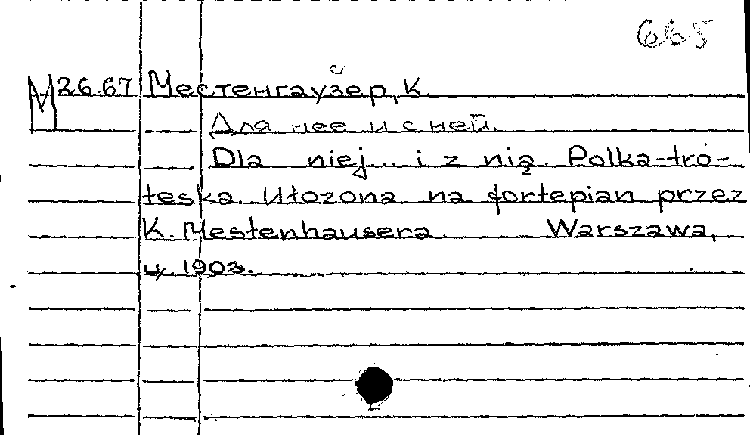 665
М26.67 Местенгаузер, К.
Для нее и с ней.
Dla niej.. i z nią. Polka-tro-
teska. Ułozona na fortepian przez
K. Mestenhausera. Warszawa,
ц. 1903.